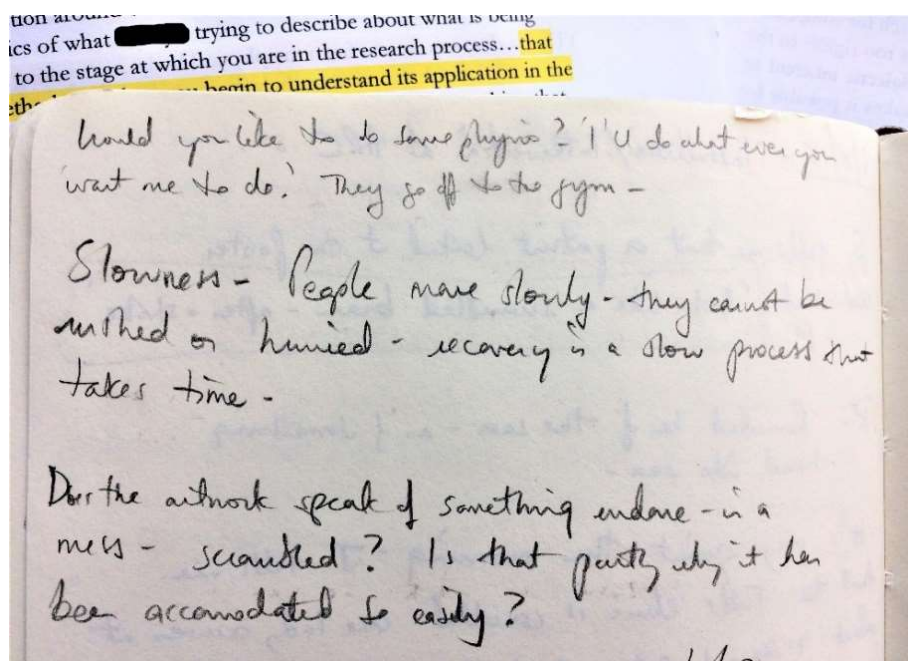 ics of what trying to describe about what is being
to the stage at which you are in the research process…that
begin to understand its application in the
Would you like to do some physio? 'I'll do what ever you
want me to do.' They go off to the gym –
Slowness – People move slowly – they cannot be
rushed or hurried – recovery is a slow process that
takes time –
Does the artwork speak of something undone – in a
mess – scrambled? Is that partly why it has
been accomodated so easily?